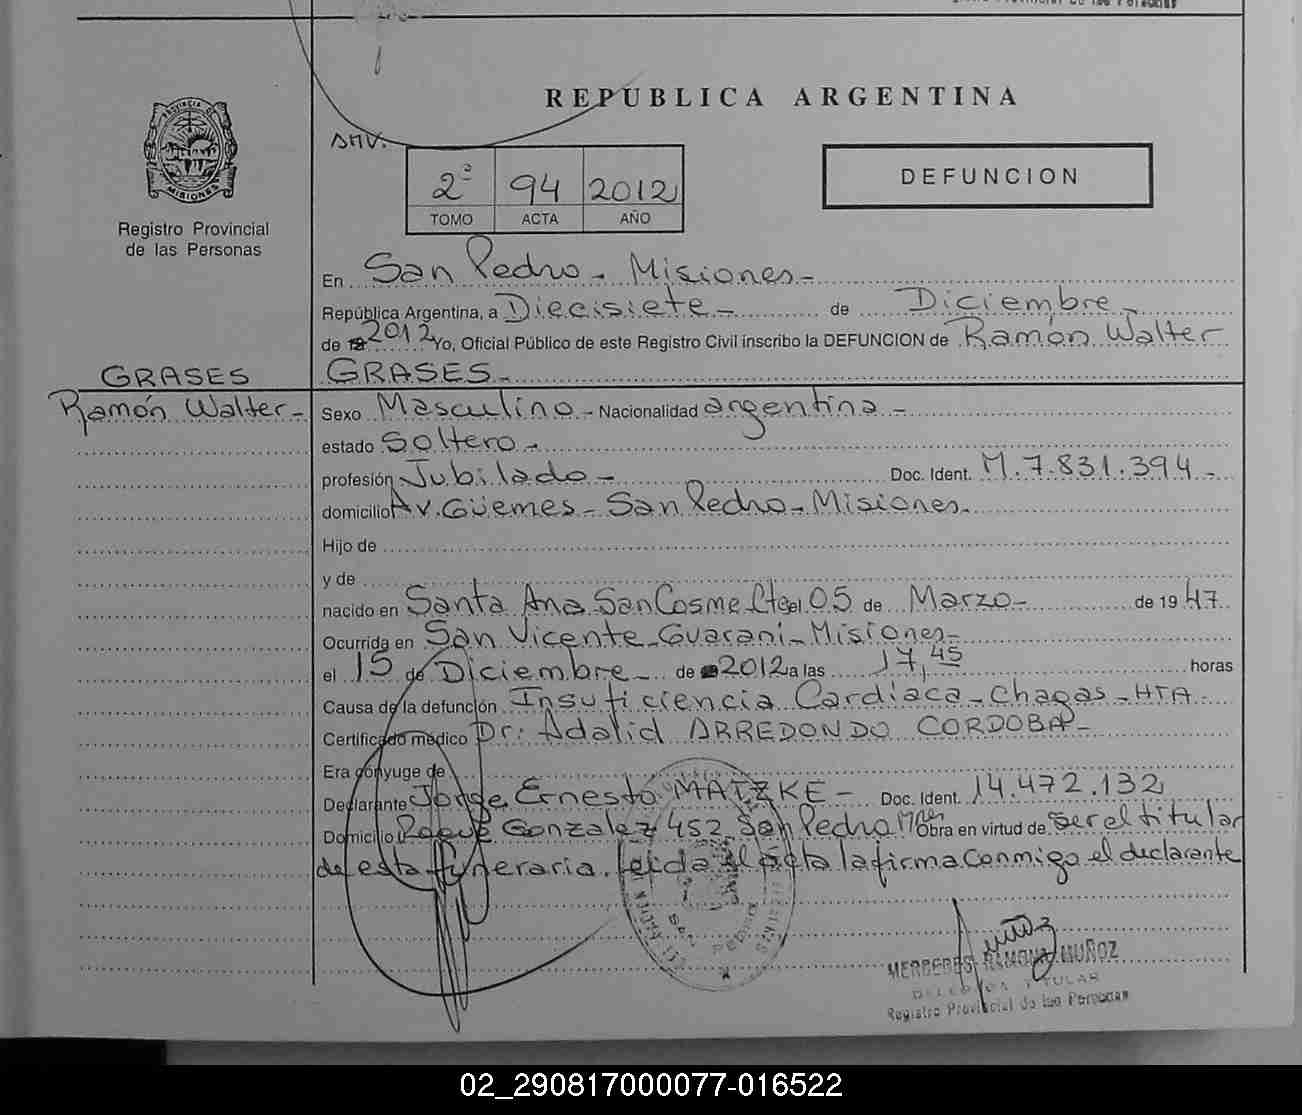 REPUBLICA ARGENTINA
SMV.
2º 94 2012
TOMO ACTA AÑO
DEFUNCION
PROVINCIA DE
MISIONES
Registro Provincial
de las Personas
En San Pedro - Misiones-
República Argentina, a Diecisiete - de Diciembre -
de 19 2012 Yo, Oficial Público de este Registro Civil inscribo la DEFUNCION de Ramón Walter
GRASES-
GRASES
Ramón Walter-
Sexo Masculino - Nacionalidad argentina -
estado Soltero -
profesión Jubilado - Doc. Ident. M.7.831.394 -
domicilio Av. Güemes - San Pedro - Misiones.
Hijo de
y de
nacido en Santa Ana San Cosme Ctes el 05 de Marzo - de 19 47
Ocurrida en San Vicente - Guaraní - Misiones -
el 15 de Diciembre - de 2012 a las 17,45 horas
Causa de la defunción Insuficiencia Cardíaca - Chagas - HTA -
Certificado médico Dr: Adalid ARREDONDO CORDOBA -
Era cónyuge de
Declarante Jorge Ernesto MATZKE - Doc. Ident. 14.472.132
Domicilio Roque Gonzalez 452 San Pedro Mnes Obra en virtud de ser el titular
de esta funeraria. Leída el acta la firma conmigo el declarante
MERCEDES RAMONA MUÑOZ
DELEGADA TITULAR
Registro Provincial de las Personas
02_290817000077-016522